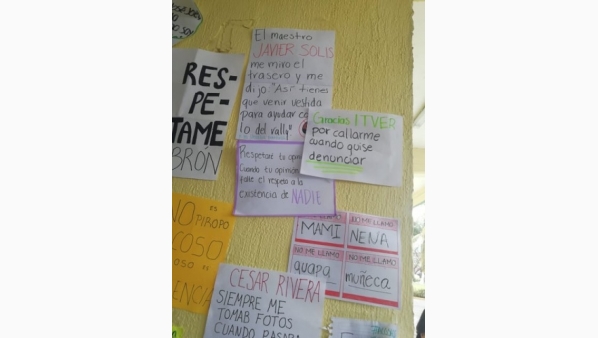 RES-
PE-
TAME
BRÓN
El maestro
JAVIER SOLIS
me miro el
trasero y me
dijo "Así tienes
que venir vestida
para ayudar
lo del rally"
Gracias ITVER
por callarme
cuando quise
denunciar
Respetare tu
Cuando tu opinion
falte el respeto a la
existencia de NADIE
NO ES
PIROPO
COSO
NO ME LLAMO
MAMI
NO ME LLAMO
NENA
NO ME LLAMO
guapa
NO ME LLAMO
muñeca
CESAR RIVERA
SIEMPRE ME
TOMAB FOTOS
CUANDO PASABA